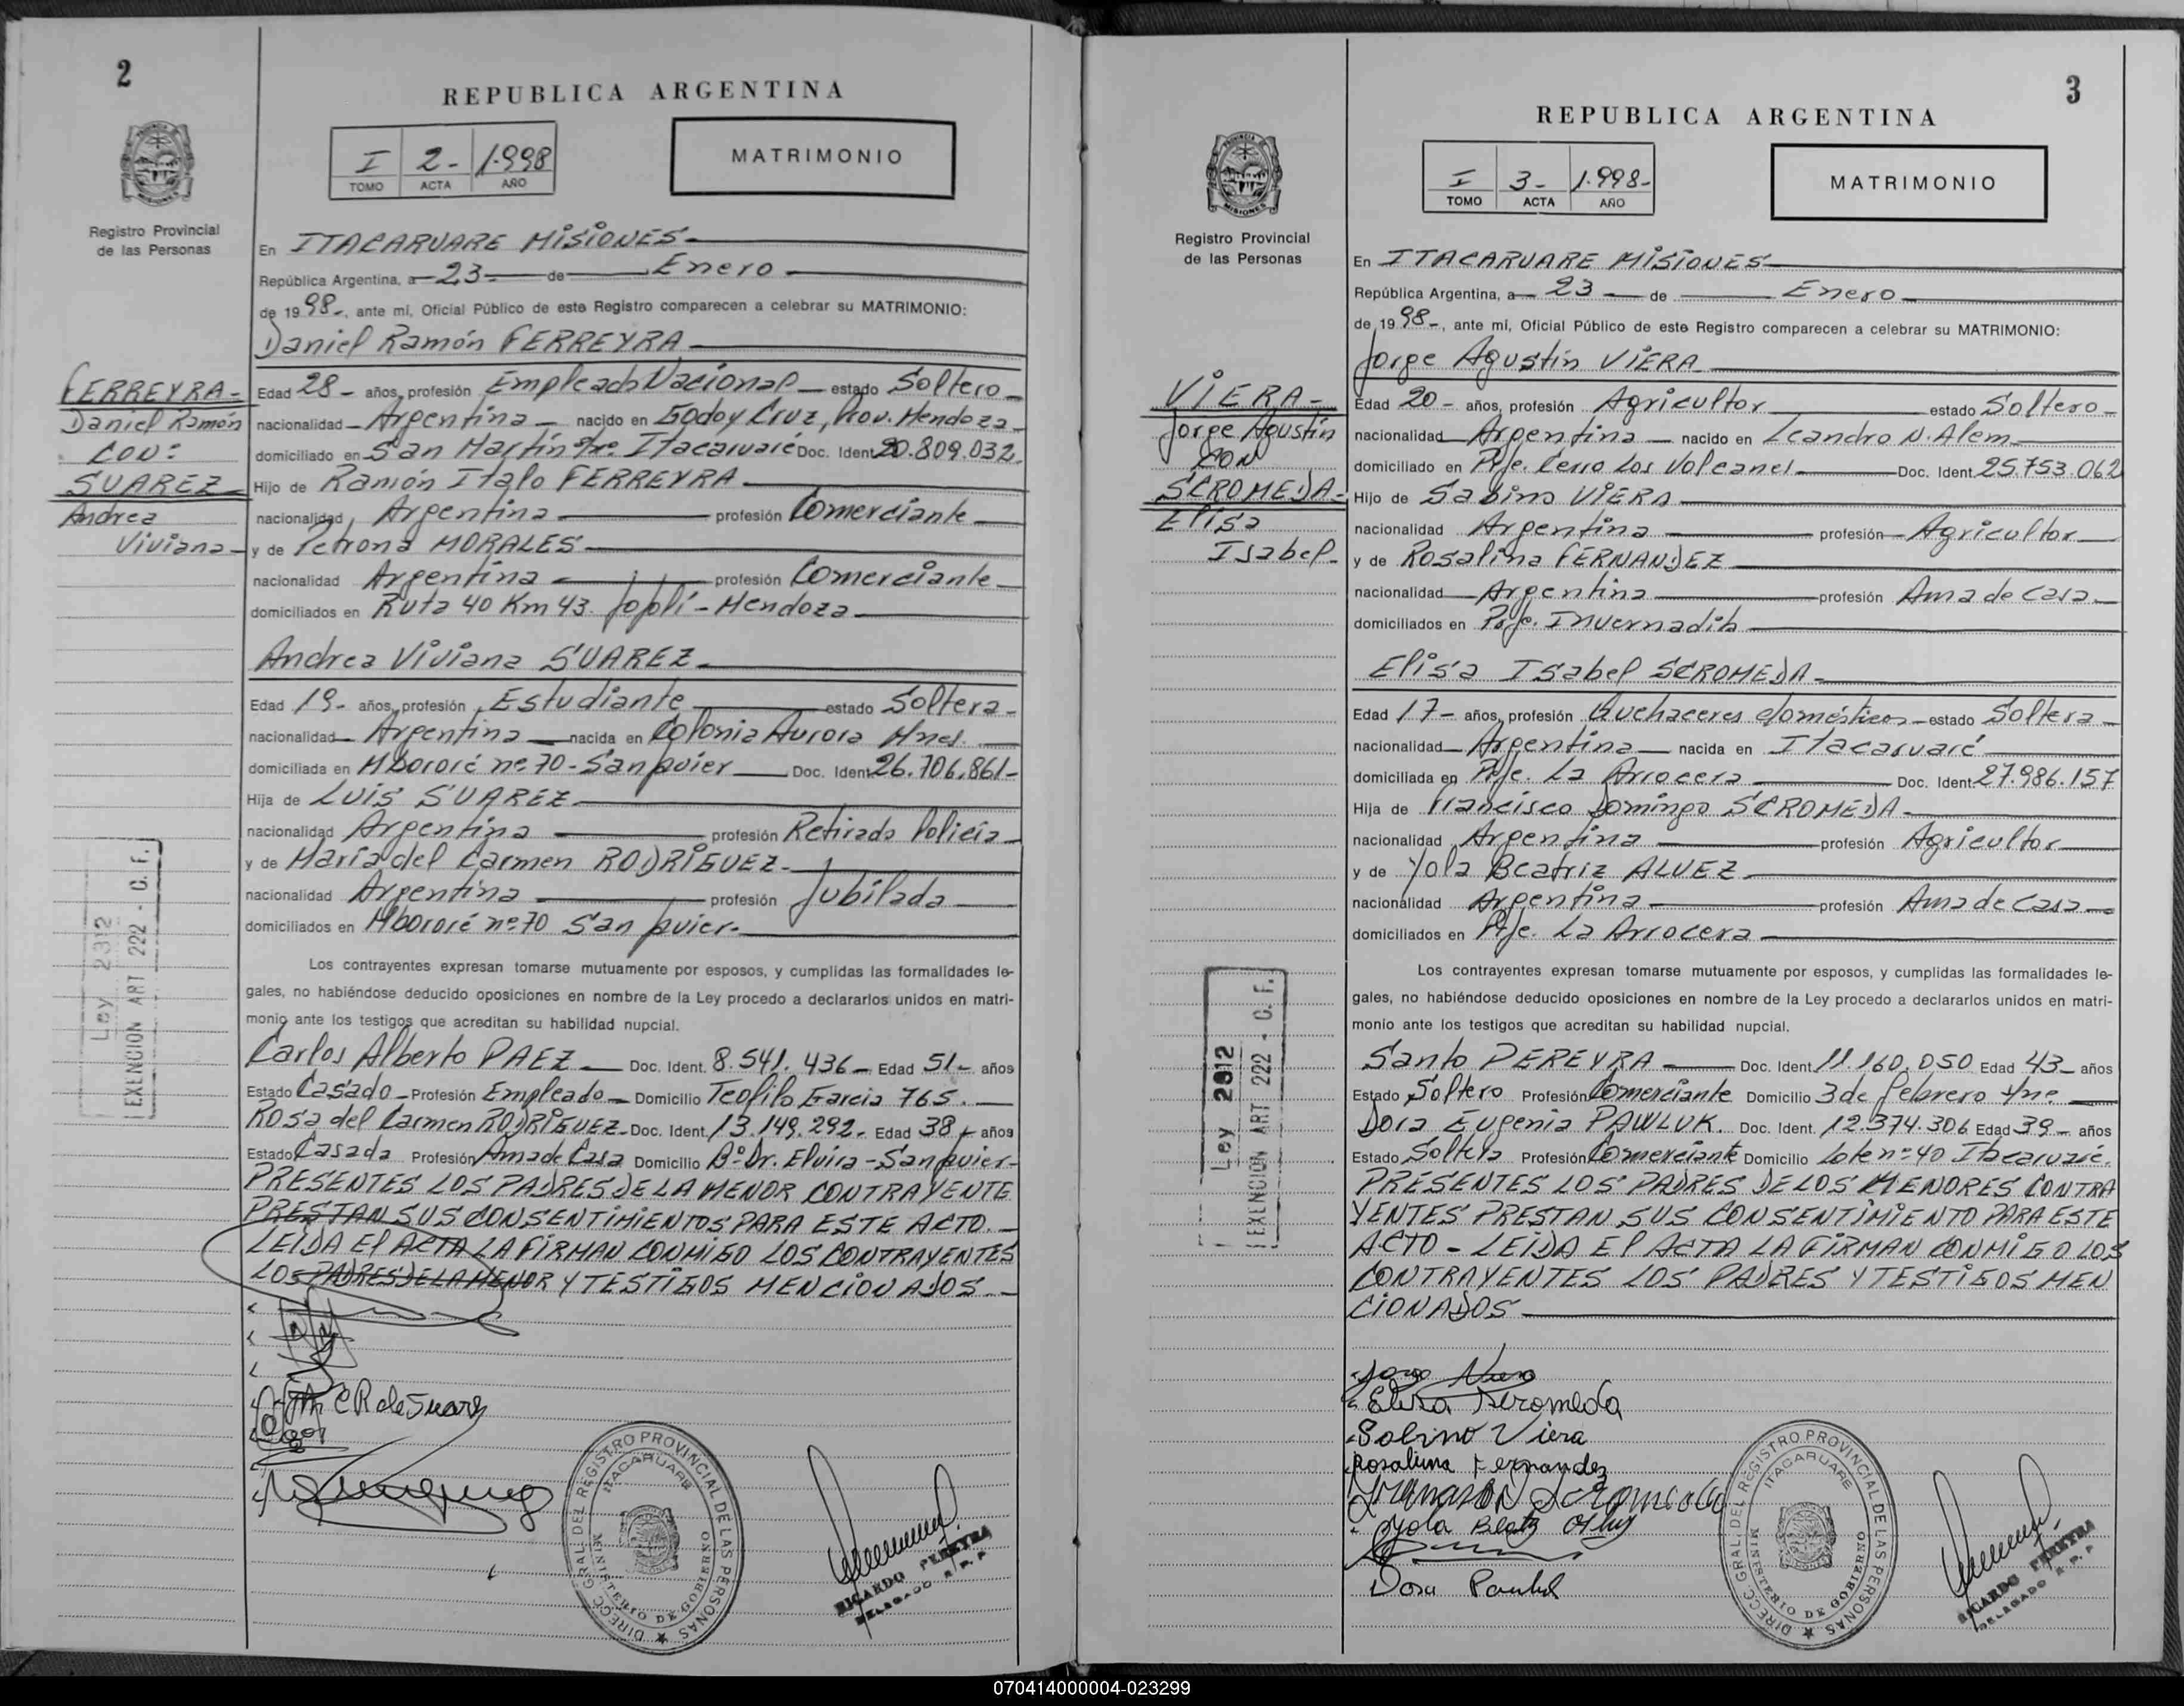 2
REPUBLICA ARGENTINA
I 2- 1.998
TOMO ACTA AÑO
MATRIMONIO
Registro Provincial
de las Personas
En ITACARUARE MISIONES-
República Argentina, a 23 de Enero
de 1998-, ante mí, Oficial Público de este Registro comparecen a celebrar su MATRIMONIO:
Daniel Ramón FERREYRA
FERREYRA-
Daniel Ramón
CON:
SUAREZ
Andrea
Viviana
Edad 28- años, profesión Empleado Nacional estado Soltero
nacionalidad Argentina nacido en Godoy Cruz, Prov. Mendoza
domiciliado en San Martín Itacaruaré Doc. Ident. 20.809.032
Hijo de Ramón Italo FERREYRA
nacionalidad Argentina profesión Comerciante
y de Petrona MORALES
nacionalidad Argentina profesión Comerciante
domiciliados en Ruta 40 Km 43. - Mendoza
Andrea Viviana SUAREZ
Edad 19- años, profesión Estudiante estado Soltera
nacionalidad Argentina nacida en Colonia Aurora Mnes.
domiciliada en Mbororé nº 70 - San Javier Doc. Ident. 26.706.861-
Hija de LUIS SUAREZ
nacionalidad Argentina profesión Retirado Policía
y de María del Carmen RODRÍGUEZ
nacionalidad Argentina profesión Jubilada
domiciliados en Mbororé nº 70 San Javier-
Los contrayentes expresan tomarse mutuamente por esposos, y cumplidas las formalidades le-
gales, no habiéndose deducido oposiciones en nombre de la Ley procedo a declararlos unidos en matri-
monio ante los testigos que acreditan su habilidad nupcial.
Carlos Alberto PAEZ Doc. Ident. 8.541.436 Edad 51- años
Estado Casado Profesión Empleado Domicilio Teofilo Garcia 765.
ROSA del Carmen RODRÍGUEZ Doc. Ident. 13.149.292- Edad 38 años
Estado Casada Profesión Ama de Casa Domicilio Bº Dr. Elvira - San Javier-
PRESENTES LOS PADRES DE LA MENOR CONTRAYENTE
PRESTAN SUS CONSENTIMIENTOS PARA ESTE ACTO.
LEIDA El ACTA LA FIRMAN CONMIGO LOS CONTRAYENTES
LOS PADRES DE LA MENOR Y TESTIGOS MENCIONADOS
Ley 2312
EXENCION ART 222 - C. F.
C R de Suarez
DIRECC. GRAL DEL REGISTRO PROVINCIAL DE LAS PERSONAS
ITACARUARE
MINISTERIO DE GOBIERNO
RICARDO PEREYRA
DELEGADO R. P. P
3
REPUBLICA ARGENTINA
I 3- 1.998-
TOMO ACTA AÑO
MATRIMONIO
PROVINCIA
MISIONES
Registro Provincial
de las Personas
En ITACARUARE MISIONES
República Argentina, a 23 de Enero
de 1998-, ante mí, Oficial Público de este Registro comparecen a celebrar su MATRIMONIO:
Jorge Agustín VIERA
VIERA-
Jorge Agustín
CON
SCROMEDA-
Elisa
Isabel-
Edad 20- años, profesión Agricultor estado Soltero
nacionalidad Argentina nacido en Leandro N. Alem
domiciliado en Pje. Cerro Los Volcanes Doc. Ident. 25.753.062
Hijo de Sabino VIERA
nacionalidad Argentina profesión Agricultor
y de Rosalina FERNANDEZ
nacionalidad Argentina profesión Ama de Casa
domiciliados en Pje. Invernadita
Elisa Isabel SCROMEDA
Edad 17- años, profesión Quehaceres domésticos estado Soltera
nacionalidad Argentina nacida en Itacaruaré
domiciliada en Pje. La Arrocera Doc. Ident. 27.986.157
Hija de Francisco Domingo SCROMEDA
nacionalidad Argentina profesión Agricultor
y de Yola Beatriz ALVEZ
nacionalidad Argentina profesión Ama de Casa
domiciliados en Pje. La Arrocera
Los contrayentes expresan tomarse mutuamente por esposos, y cumplidas las formalidades le-
gales, no habiéndose deducido oposiciones en nombre de la Ley procedo a declararlos unidos en matri-
monio ante los testigos que acreditan su habilidad nupcial.
Santo PEREYRA Doc. Ident. 11.160.050 Edad 43- años
Estado Soltero Profesión Comerciante Domicilio 3 de Febrero
Dora Eugenia PAWLUK. Doc. Ident. 12.374.306 Edad 39- años
Estado Soltera Profesión Comerciante Domicilio Lote nº 40 Itacaruaré.
PRESENTES LOS PADRES DE LOS MENORES CONTRA
YENTES PRESTAN SUS CONSENTIMIENTO PARA ESTE
ACTO - LEIDA El ACTA LA FIRMAN CONMIGO LOS
CONTRAYENTES LOS PADRES Y TESTIGOS MEN
CIONADOS
Ley 2812
EXENCION ART 222 - C. F.
Jorge Viera
Elisa Scromeda
Sabino Viera
Rosalina Fernandez
Scromeda
Yola Beatz
Dora
DIRECC. GRAL DEL REGISTRO PROVINCIAL DE LAS PERSONAS
ITACARUARE
MINISTERIO DE GOBIERNO
RICARDO PEREYRA
DELEGADO R. P. P
070414000004-023299